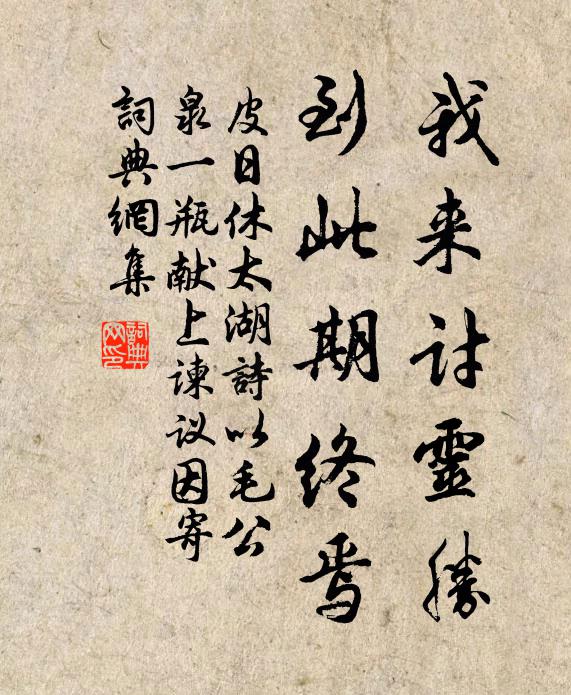 我来討靈勝
到此期終焉
皮日休太湖詩以毛公
泉一瓶献上谏议因寄
詞典網集
詞典网印